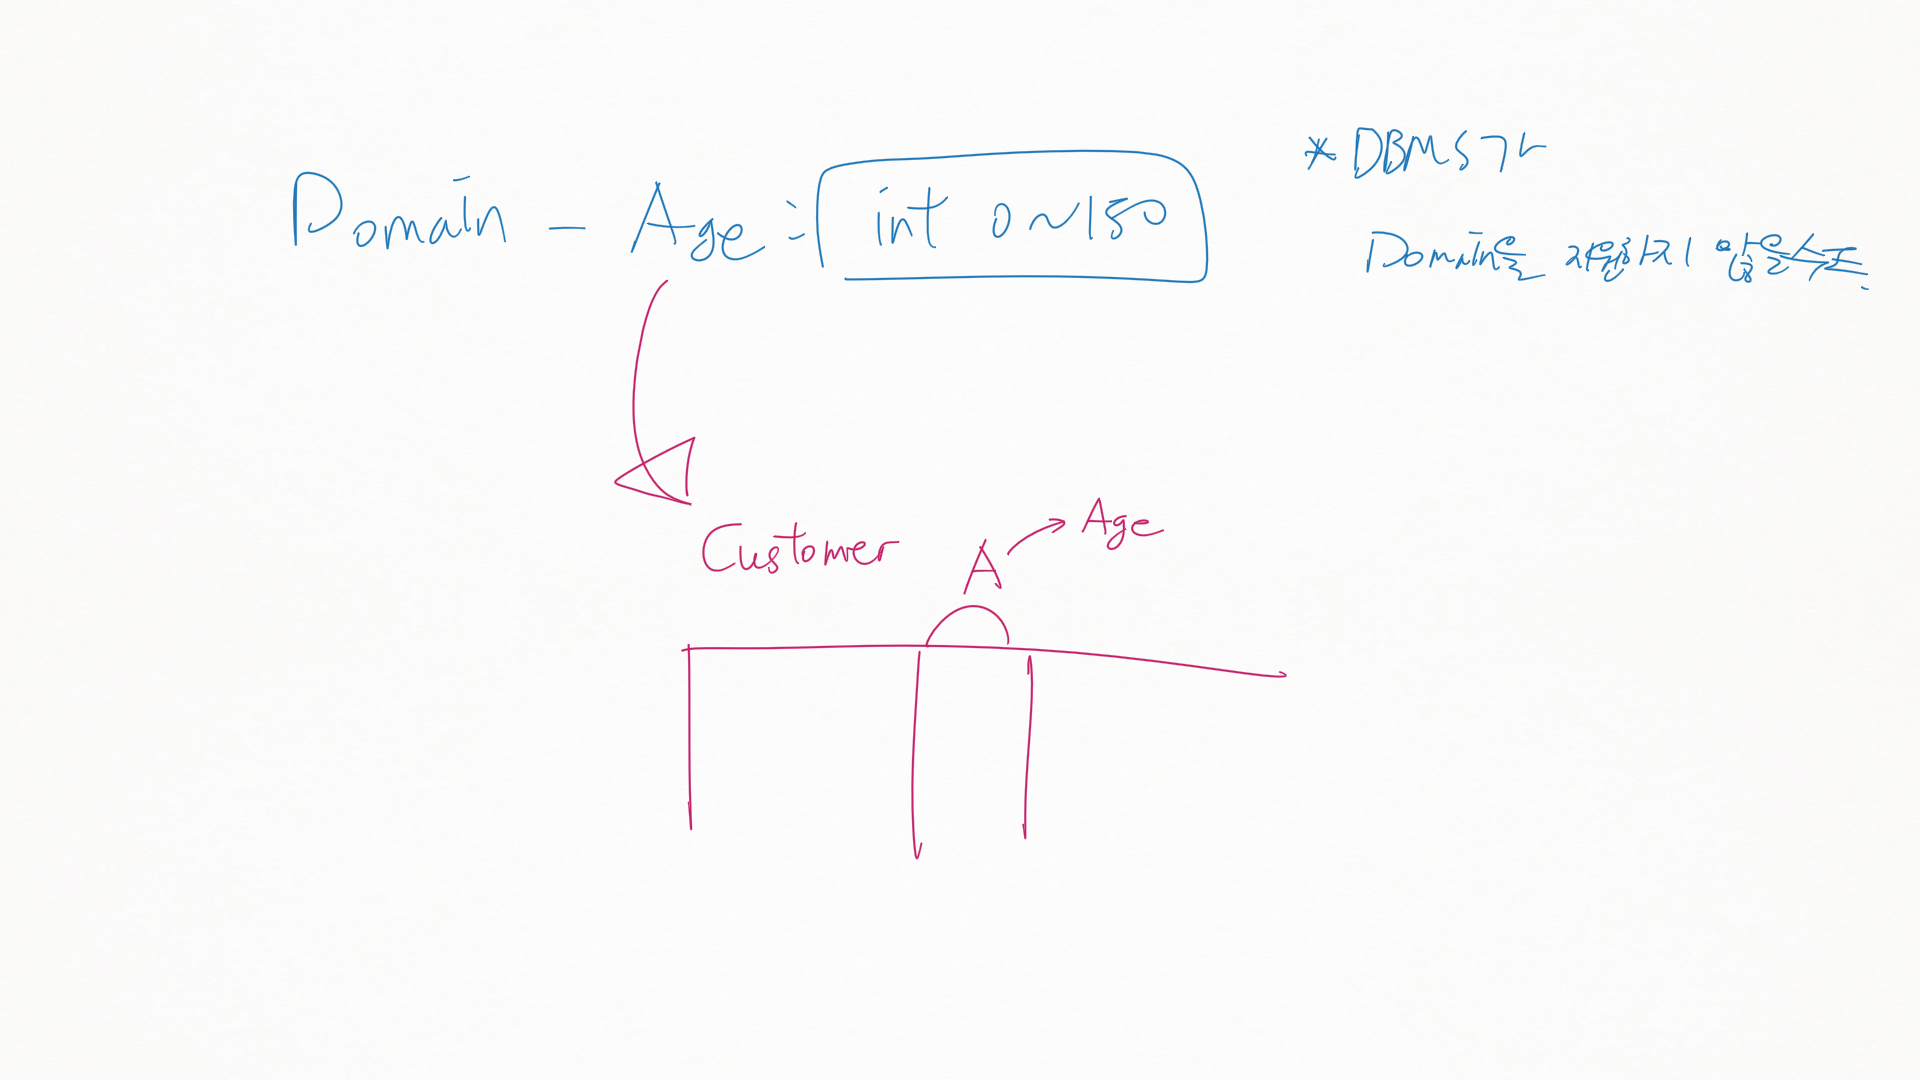 Domain - Age : int 0~150
* DBMS가
Domain을 지원하지 않을수도.
Customer
A → Age